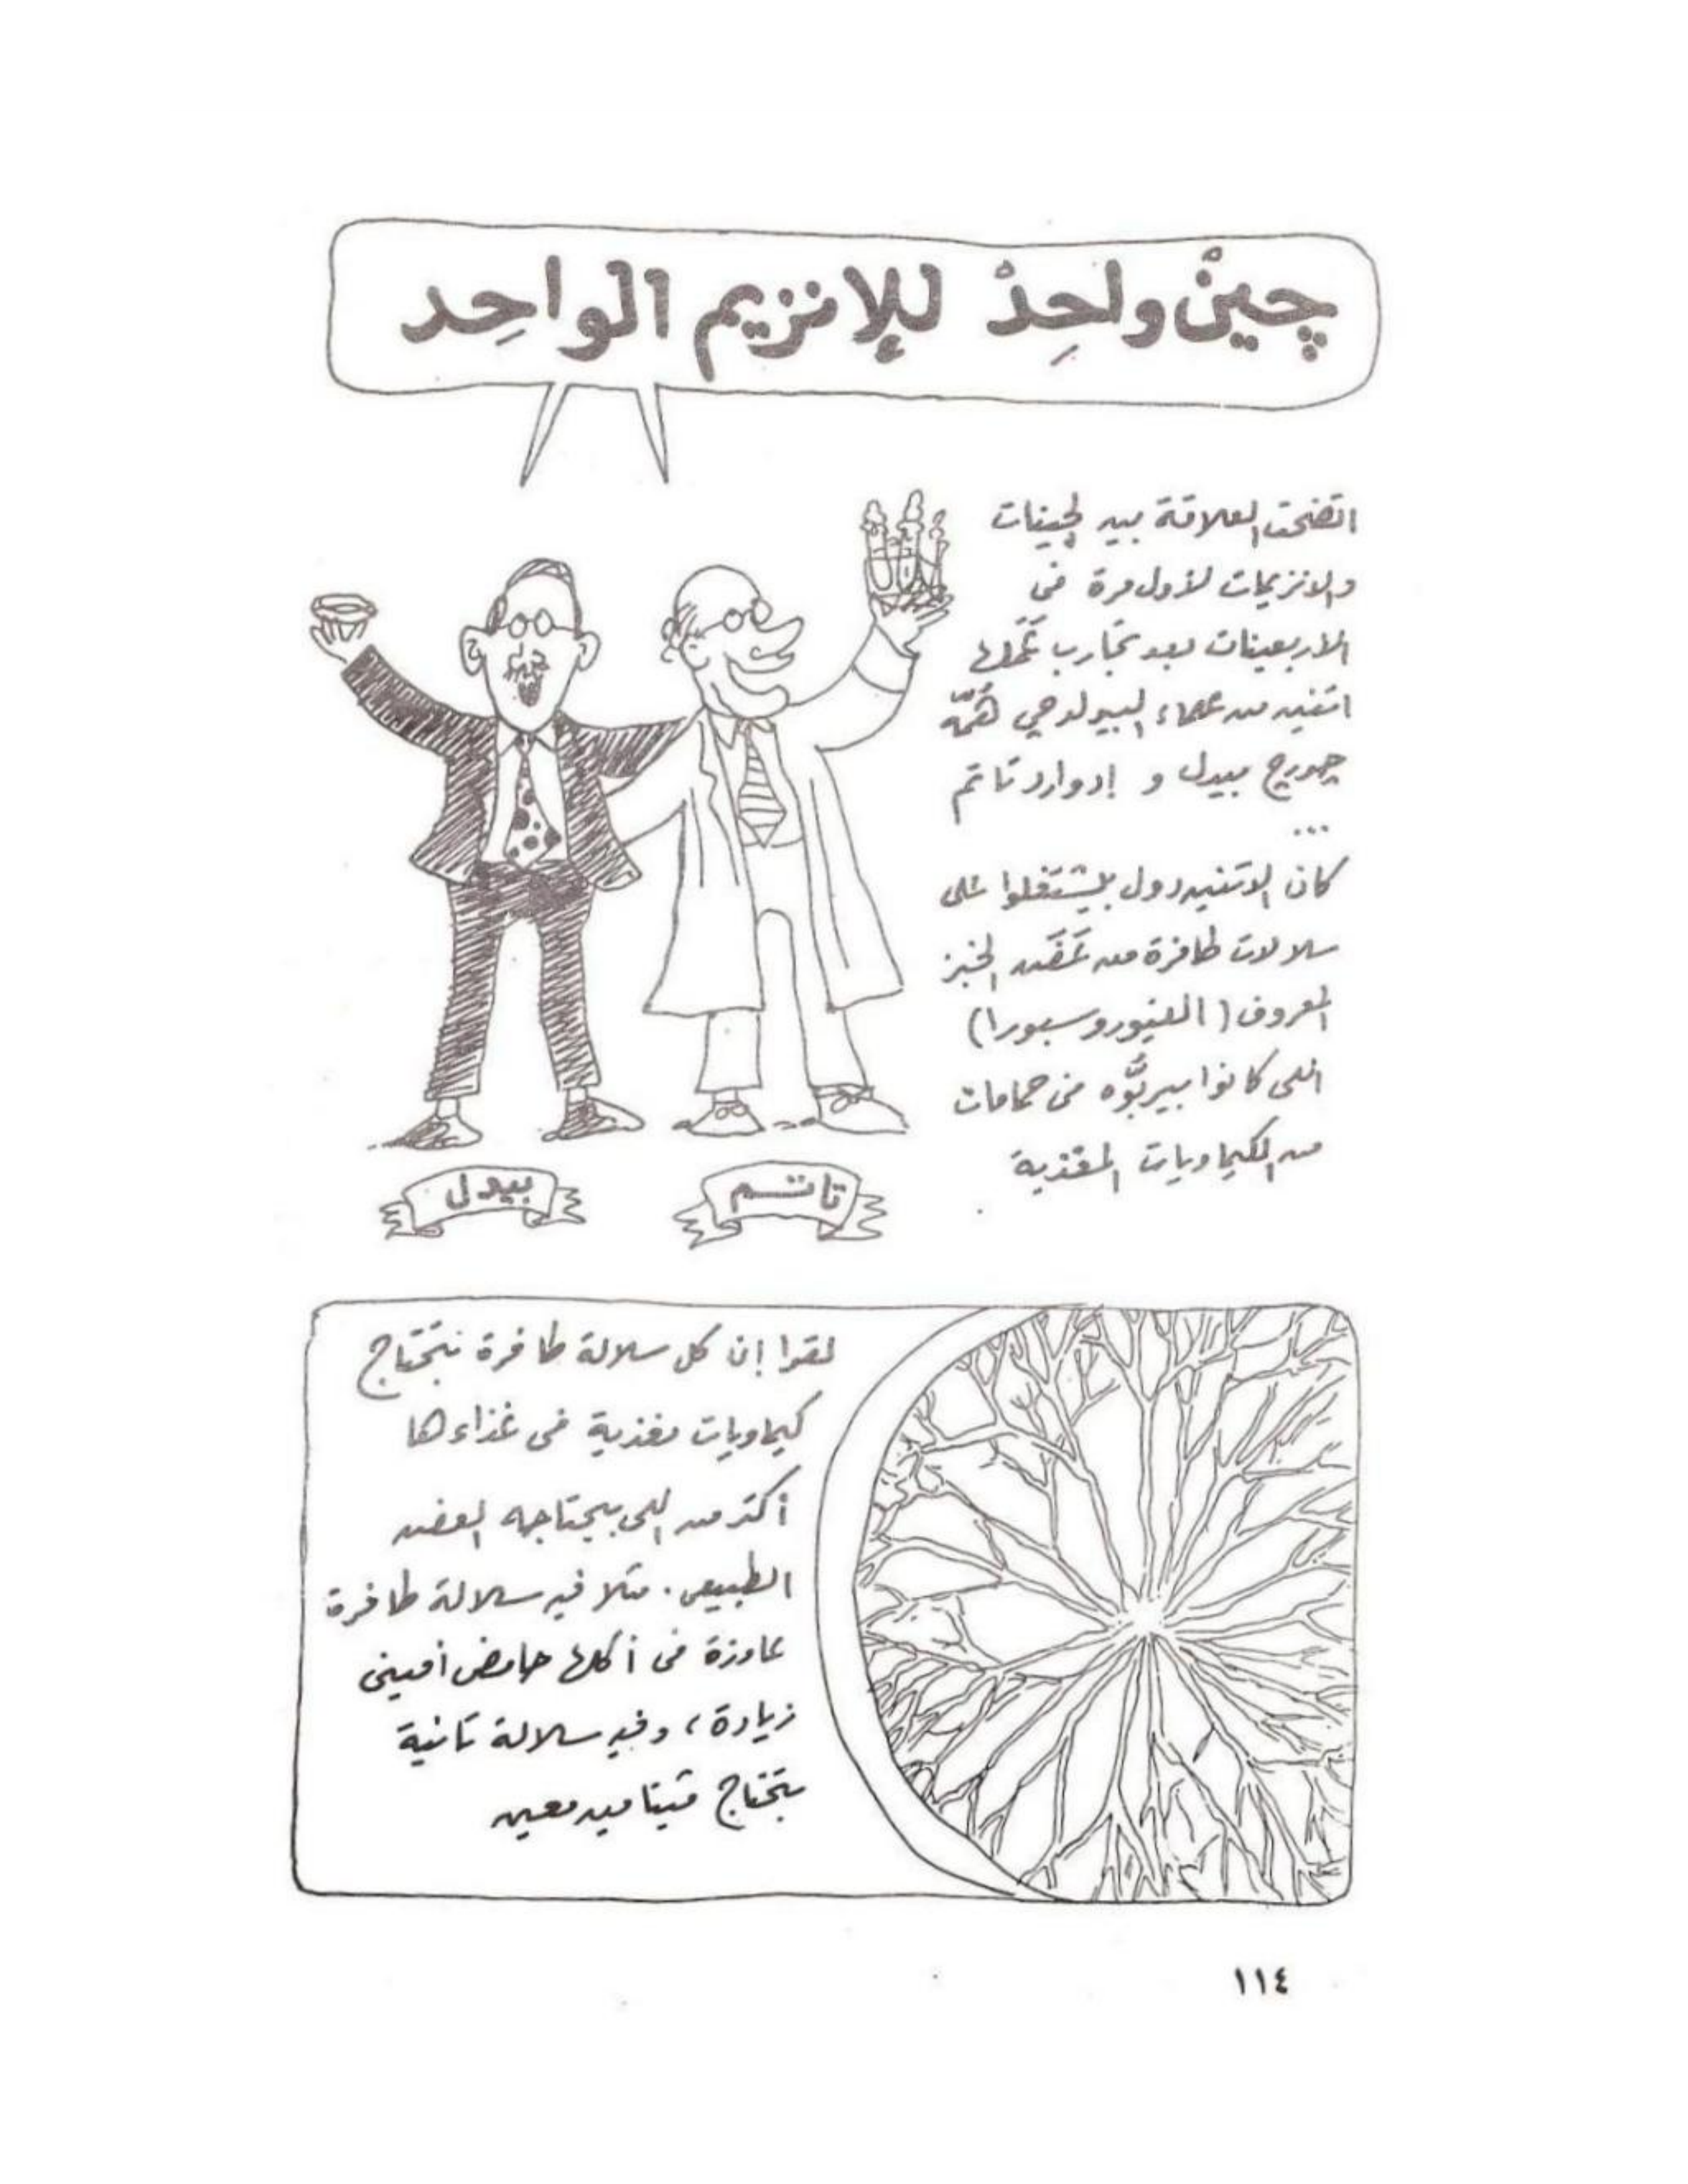 چينْ واحِدْ للإنزيم الواحِد
اتضحت العلاقة بين الچينات
والانزيمات لأول مرة فى
الأربعينات بعد تجارب عَمَلها
اتنين من علماء البيولوچي هُمّه
چورچ بيدل و إدوارد تاتم
...
كان الاتنين دول بيشتغلوا على
سلالات طافرة من عَفَن الخبز
المعروف (النيوروسبورا)
اللى كانوا بيربُّوه فى حمامات
من الكيماويات المغذية
بيدل
تاتم
لقوا إن كل سلالة طافرة بتحتاج
كيماويات مغذية فى غذاءها
أكتر من اللى بيحتاجه العفن
الطبيعى. مثلا فيه سلالة طافرة
عاوزة فى أكلها حامض أمينى
زيادة، وفيه سلالة تانية
بتحتاج ڤيتامين معين
١١٤